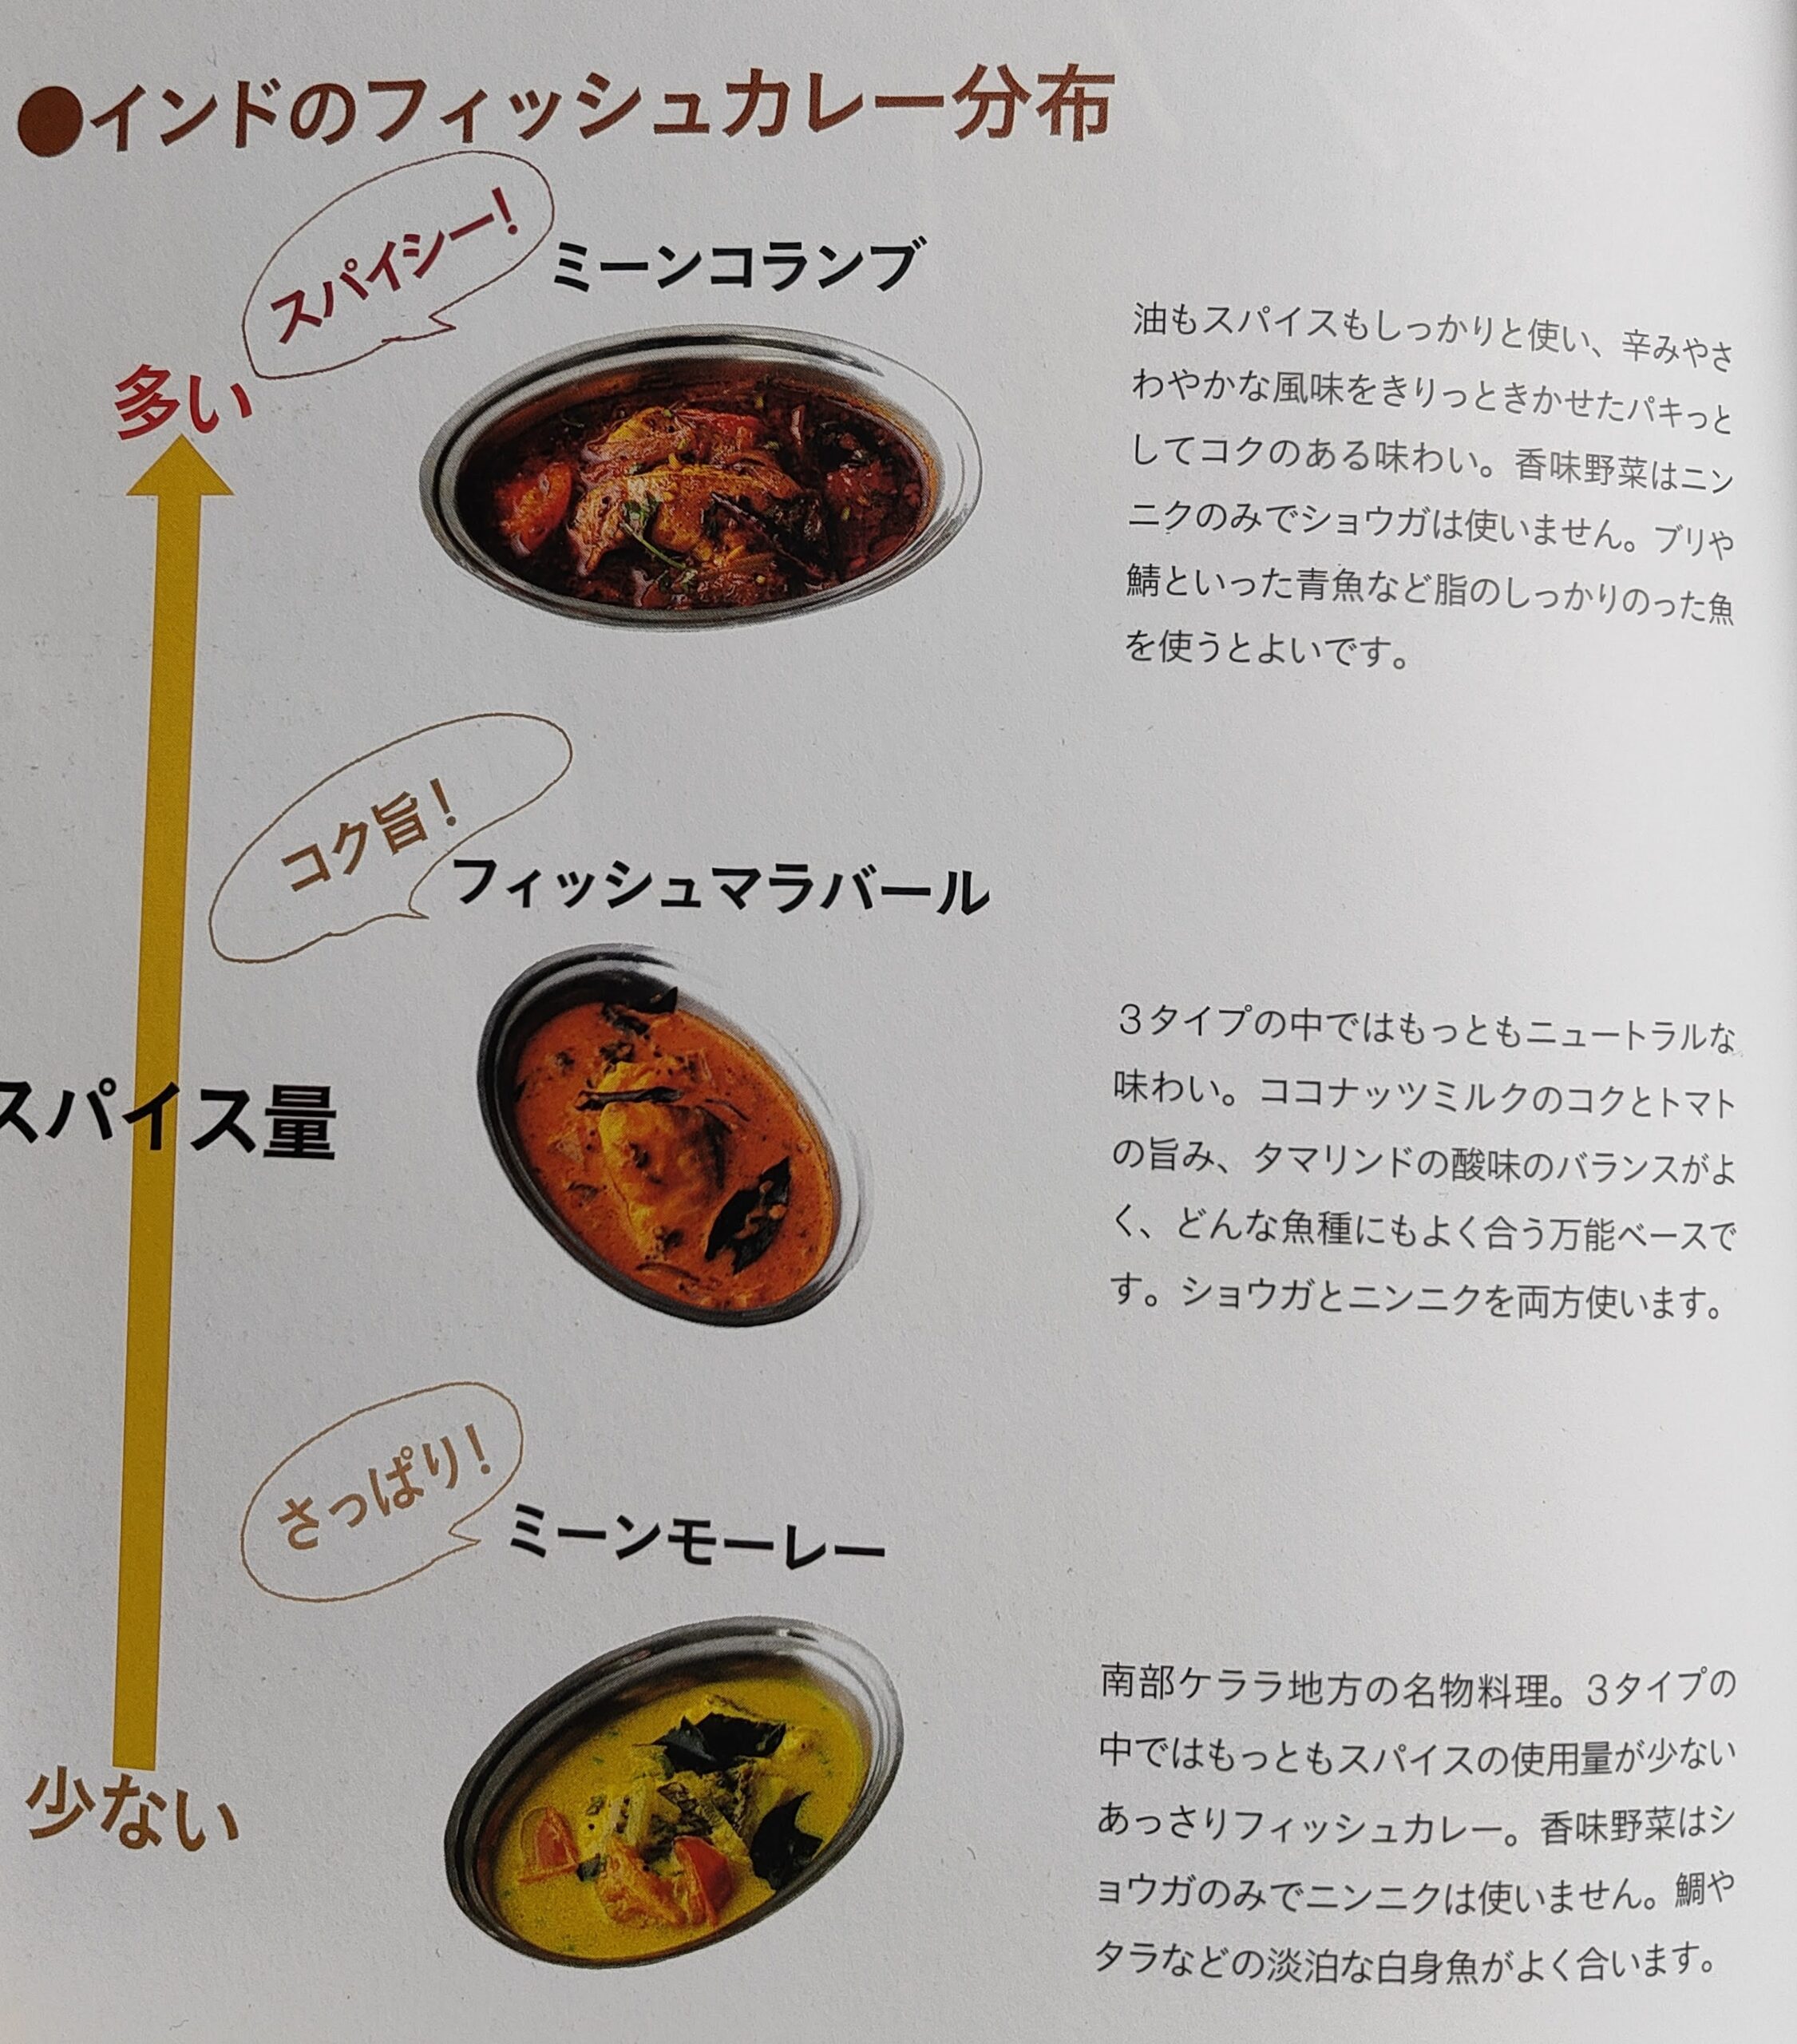 ●インドのフィッシュカレー分布
スパイシー!
ミーンコランブ
多い
油もスパイスもしっかりと使い、辛みやさ
わやかな風味をきりっときかせたパキっと
してコクのある味わい。香味野菜はニン
ニクのみでショウガは使いません。ブリや
鯖といった青魚など脂のしっかりのった魚
を使うとよいです。
コク旨!
フィッシュマラバール
スパイス量
3タイプの中ではもっともニュートラルな
味わい。ココナッツミルクのコクとトマト
の旨み、タマリンドの酸味のバランスがよ
く、どんな魚種にもよく合う万能ベースで
す。ショウガとニンニクを両方使います。
さっぱり!
ミーンモーレー
少ない
南部ケララ地方の名物料理。3タイプの
中ではもっともスパイスの使用量が少ない
あっさりフィッシュカレー。香味野菜はシ
ョウガのみでニンニクは使いません。鯛や
タラなどの淡泊な白身魚がよく合います。